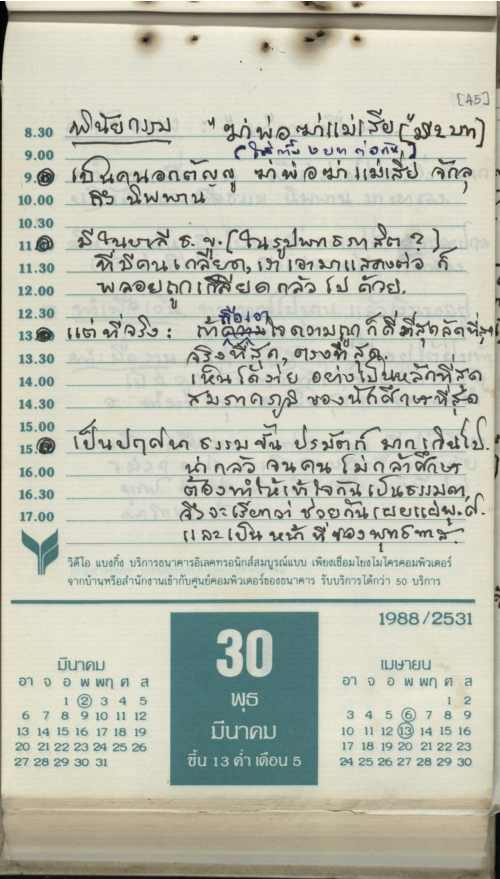 [A5]
8.30 พินัยกรรม "ฆ่าพ่อฆ่าแม่เสีย"
9.00
9.30 เป็นคนอกตัญญู ฆ่าพ่อฆ่าแม่เสีย จักลุ
10.00 ถึง นิพพาน"
10.30
11.00 มีในบาลี ธ.ข. [ในรูปพุทธภาสิต?]
11.30 ที่มีคนเกลียด, เราเอามาแสดงต่อ ก็
12.00 พลอยถูกเกลียดกลัว ไป ด้วย.
12.30 ถือเอา
13.00 แต่ที่จริง: ถ้า ใจความถูก ก็ดีที่สุด
13.30 จริงที่สุด, ตรงที่สุด.
14.00 เห็นได้ง่าย อย่างเป็นหลักที่สุด
14.30 สมภาคภูมิ ของนักศึกษาที่สุด
15.00
15.30 เป็นปฤศนา ธรรมชั้น ปรมัตถ์ มากเกินไป.
16.00 น่ากลัว จนคน ไม่กล้าศึกษา
16.30 ต้องทำให้เข้าใจกันเป็นธรรมดา,
17.00 จึงจะเรียกว่า ช่วยกันเผยแผ่พุ.ศ.
และเป็น หน้าที่ของพุทธทาส.
วิดีโอ แบงกิ้ง บริการธนาคารอิเลคทรอนิกส์สมบูรณ์แบบ เพียงเชื่อมโยงไมโครคอมพิวเตอร์
จากบ้านหรือสำนักงานเข้ากับศูนย์คอมพิวเตอร์ของธนาคาร รับบริการได้กว่า 50 บริการ
1988/2531
30
พุธ
มีนาคม
ขึ้น 13 ค่ำ เดือน 5
มีนาคม
อา จ อ พ พฤ ศ ส
1 2 3 4 5
6 7 8 9 10 11 12
13 14 15 16 17 18 19
20 21 22 23 24 25 26
27 28 29 30 31
เมษายน
อา จ อ พ พฤ ศ ส
1 2
3 4 5 6 7 8 9
10 11 12 13 14 15 16
17 18 19 20 21 22 23
24 25 26 27 28 29 30